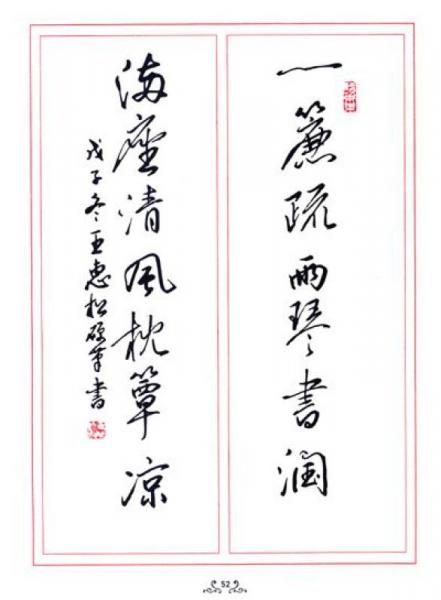 一簾疏雨琴書潤
滿座清風枕簟涼
戊子冬王惠松硬筆書
52